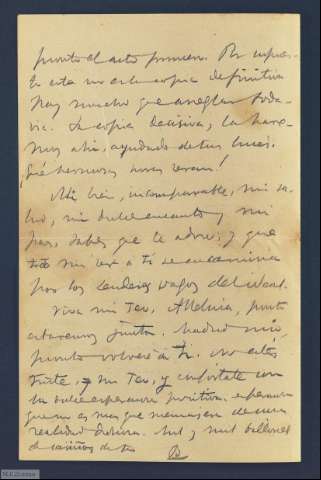 pronto el acto primero. Por supues-
to esta no es la copia definitiva
hay mucho que arreglar toda-
via. La copia decisiva, la hare-
mos ahi, ayudado de tus luces.
Qué hermosas horas seran!
Mi bien, incomparable, mi
mi dulce encanto, mi
paz, sabes que te adoro; y que
todo mi ser a ti se encamina
por los senderos vagos del ideal.
Viva mi Teo, Alleluia, pronto
estaremos juntos. Madrid mio
pronto volveré a ti. no estés
triste, mi Teo, y confortate con
la dulce esperanza positiva, esperanza
que no es mas que
realidad divina. Mil y mil billones
de cariños de tu